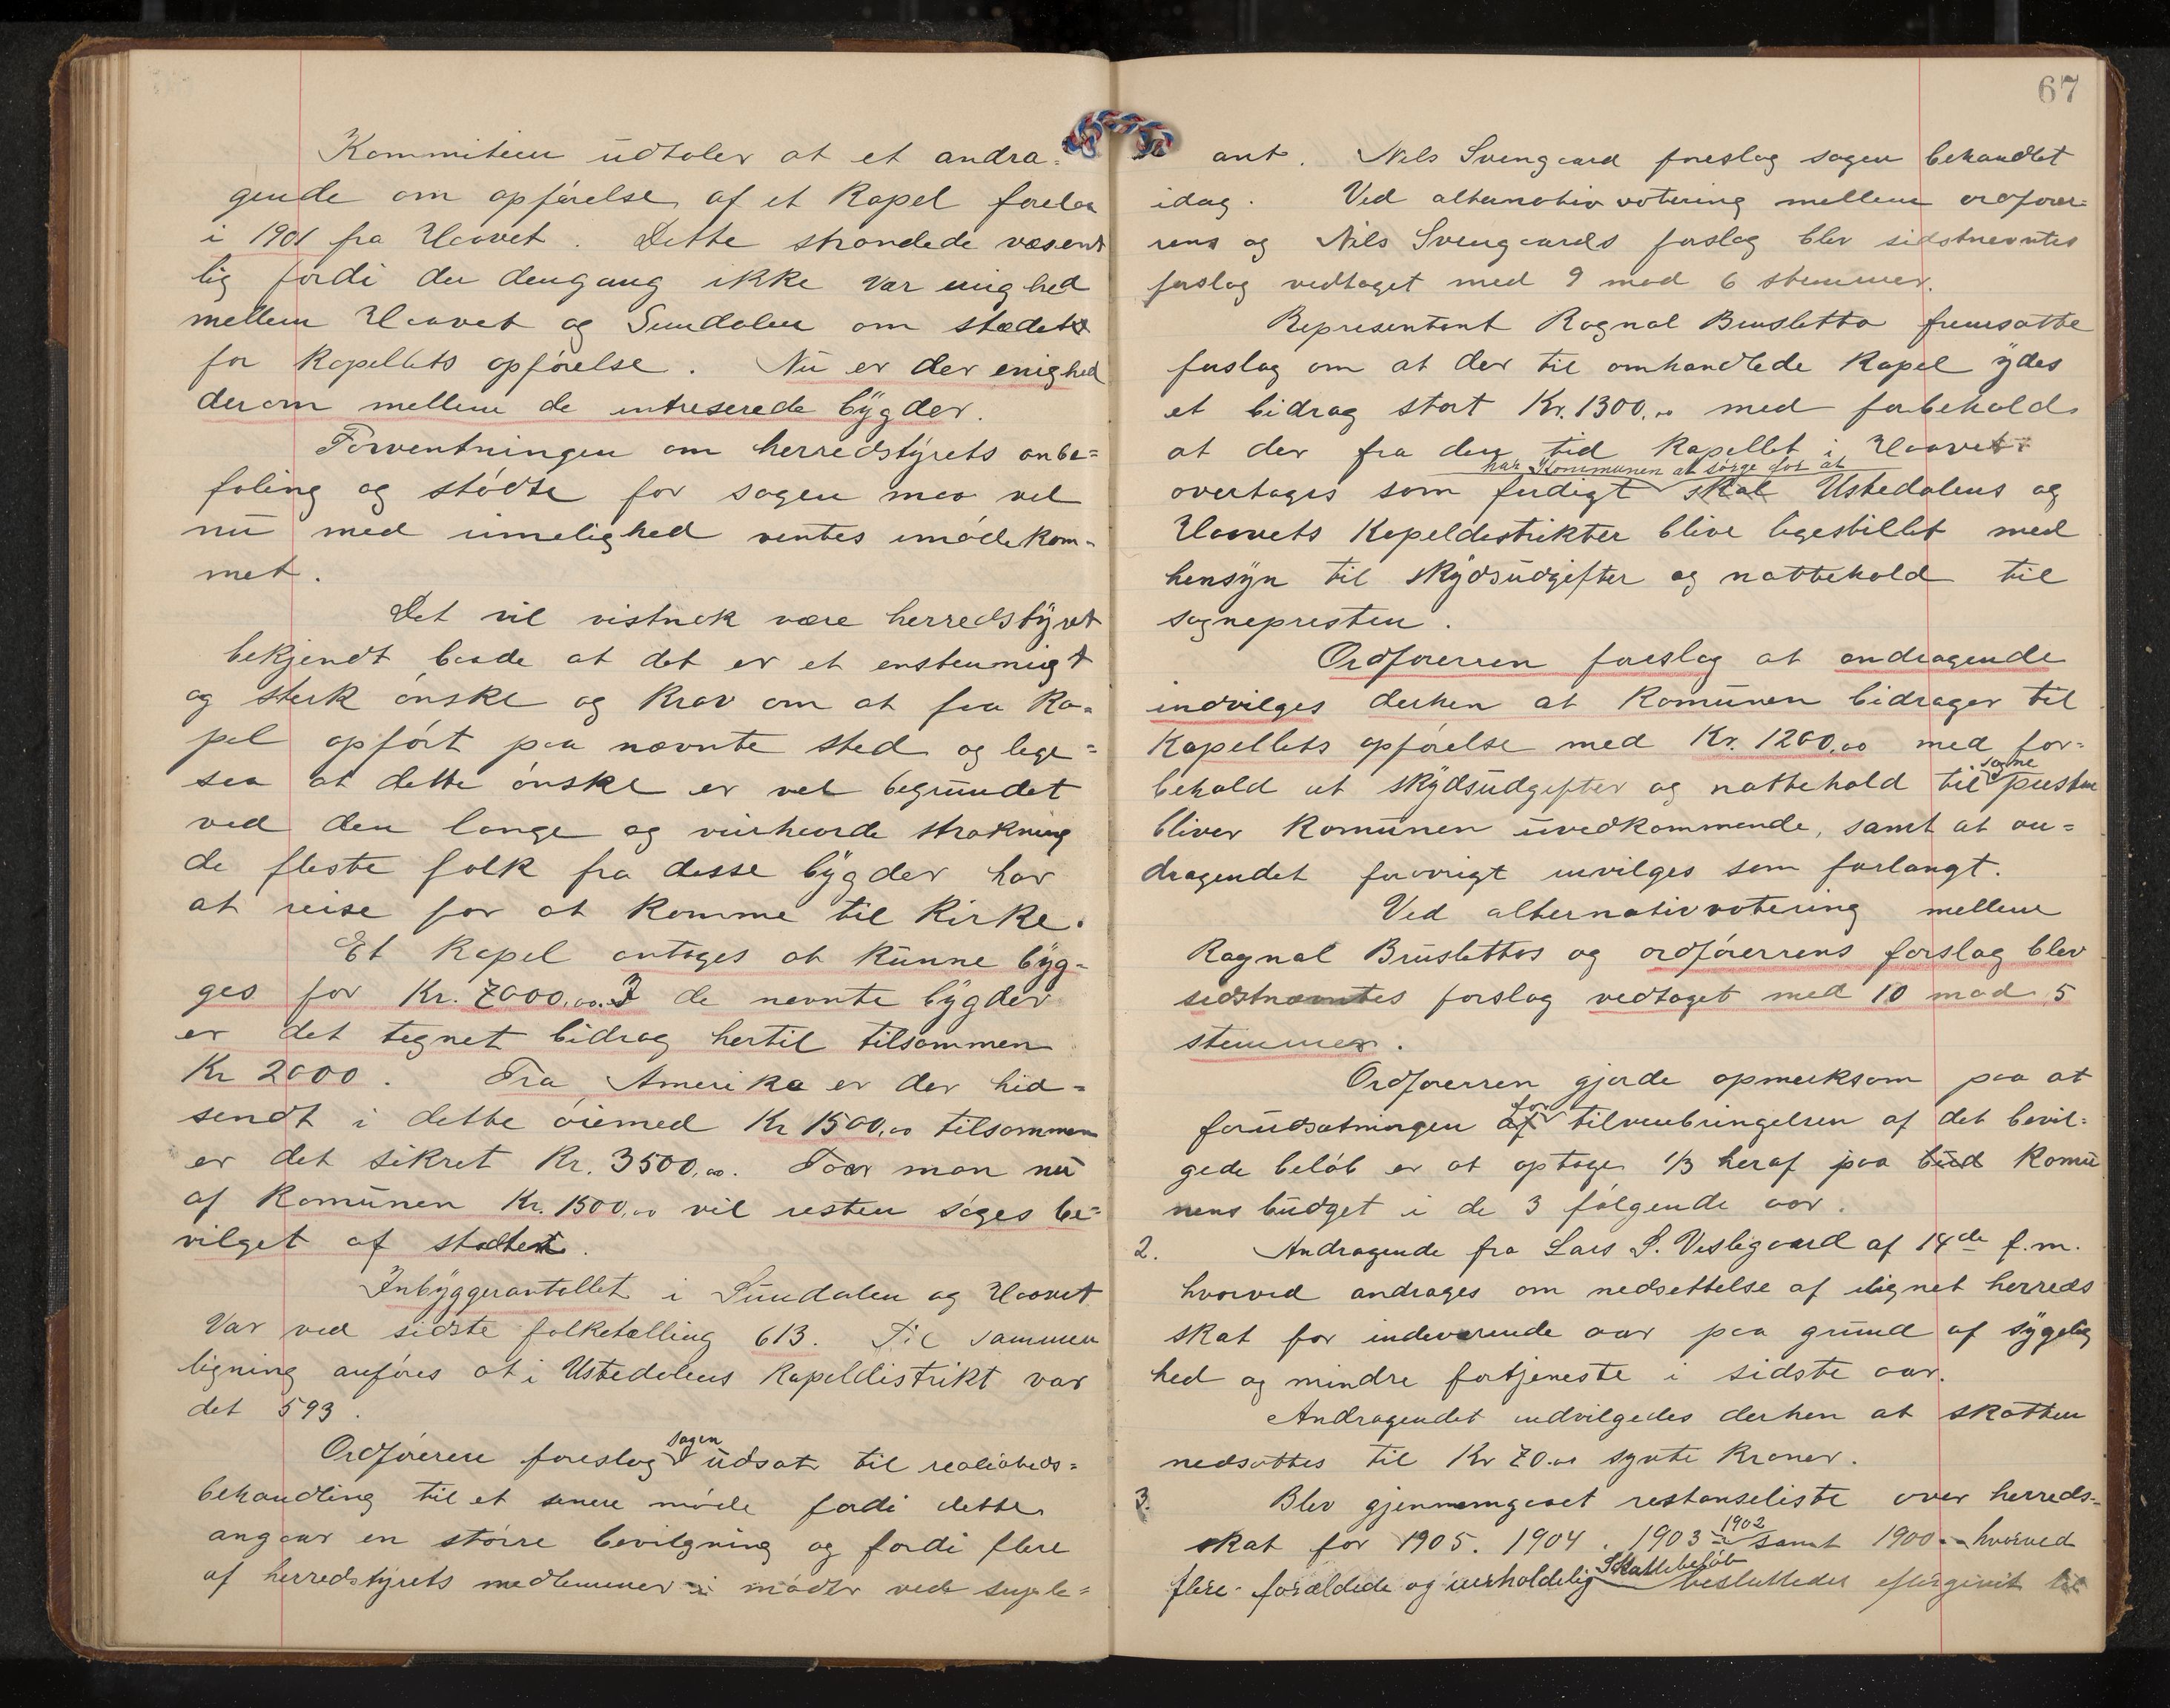 Kommitéen udtaler at et andra=
gende om opförelse af et Kapel forelaa
i 1901 fra Haavet. Dette strandede væsent
lig fordi der dengang ikke var enighed
mellem Haavet og Sundalen om stedet
for Kapellets opförelse. Nu er der enighed
derom mellem de intreserede bygder.
Forventningen om herredstyrets anbe=
faling og stödte for sagen maa vel
nu med rimelighed ventes imödekom-
met.
Det vil vistnok være herredstyret
bekjendt baade at det er et enstemmigt
og sterk önske og Krav om at faa Ka-
pel opfört paa nævnte sted og lige=
saa at dette önske er vel begrundet
ved den lange og veirhaarde strækning
de fleste folk fra disse bygder har
at reise for at komme til Kirke.
Et Kapel antages at kunne byg-
ges for Kr. 7000.00. I de nevnte bygder
er det tegnet bidrag hertil tilsammen
Kr 2000. Fra Amerika er der hid=
sendt i dette öiemed Kr 1500,00 tilsammen
er det sikret Kr. 3500,00. Faar man nu
af Komunen Kr. 1500,00 vil resten söges be=
vilget af
Inbyggerantallet i Sundalen og Haavet
Var ved sidste folketælling 613. Til sammen
ligning anföres at i Ustedalens Kapeldistrikt var
det 593.
Ordföreren foreslog sagen udsat til realiteds=
behandling til et senere möde fordi dette
angaar en större bevilgning og fordi flere
af herredstyrets medlemmer möder ved suple=
67
ant. Nils Svengaard foreslog sagen behandlet
idag. Ved alternativ votering mellem ordförer=
rens og Nils Svengaards forslag blev sidstnevntes
forslag vedtaget med 9 mod 6 stemmer.
Representant Ragnal Brusletto fremsatte
forslag om at der til omhandlede Kapel ydes
et bidrag stort Kr. 1300.00 med forbehold
at der fra den tid Kapellet i Haavet
har Kommunen at sörge for at
overtages som ferdigt skal Ustedalens og
Haavets Kapeldistrikter blive ligestillet med
hensyn til skydsudgifter og nattehold til
sognepresten.
Ordförerren foreslog at andragende
indvilges derhen at Komunen bidrager til
Kapellets opförelse med Kr. 1200,00 med for=
behold at skydsudgifter og nattehold til sogne presten
bliver Komunen uvedkommende, samt at an=
dragendet forövrigt invilges som forlangt.
Ved alternativvotering mellem
Ragnal Bruslettos og ordförerrens forslag blev
sidstnævntes forslag vedtaget med 10 mod 5
stemmer.
Ordförerren gjorde opmerksom paa at
forudsætningen af for tilveiebringelsen af det bevil=
gede belöb er at optage 1/3 heraf paa bud Komu
nens budget i de 3 fölgende aar.
2. Andragende fra Lars L. Vesligaard af 14de f.m.
hvorved andrages om nedsettelse af ilignet herreds
skat for indeværende aar paa grund af sygelig
hed og mindre fortjeneste i sidste aar.
Andragendet indvilgedes derhen at skatten
nedsattes til Kr 70.00 sytte Kroner.
3. Blev gjennemgaaet restanseliste over herreds=
skat for 1905. 1904. 1903 1902 samt 1900 hvorved
flere forældede og uerholdelig Skattebelöb besluttedes eftergivet til